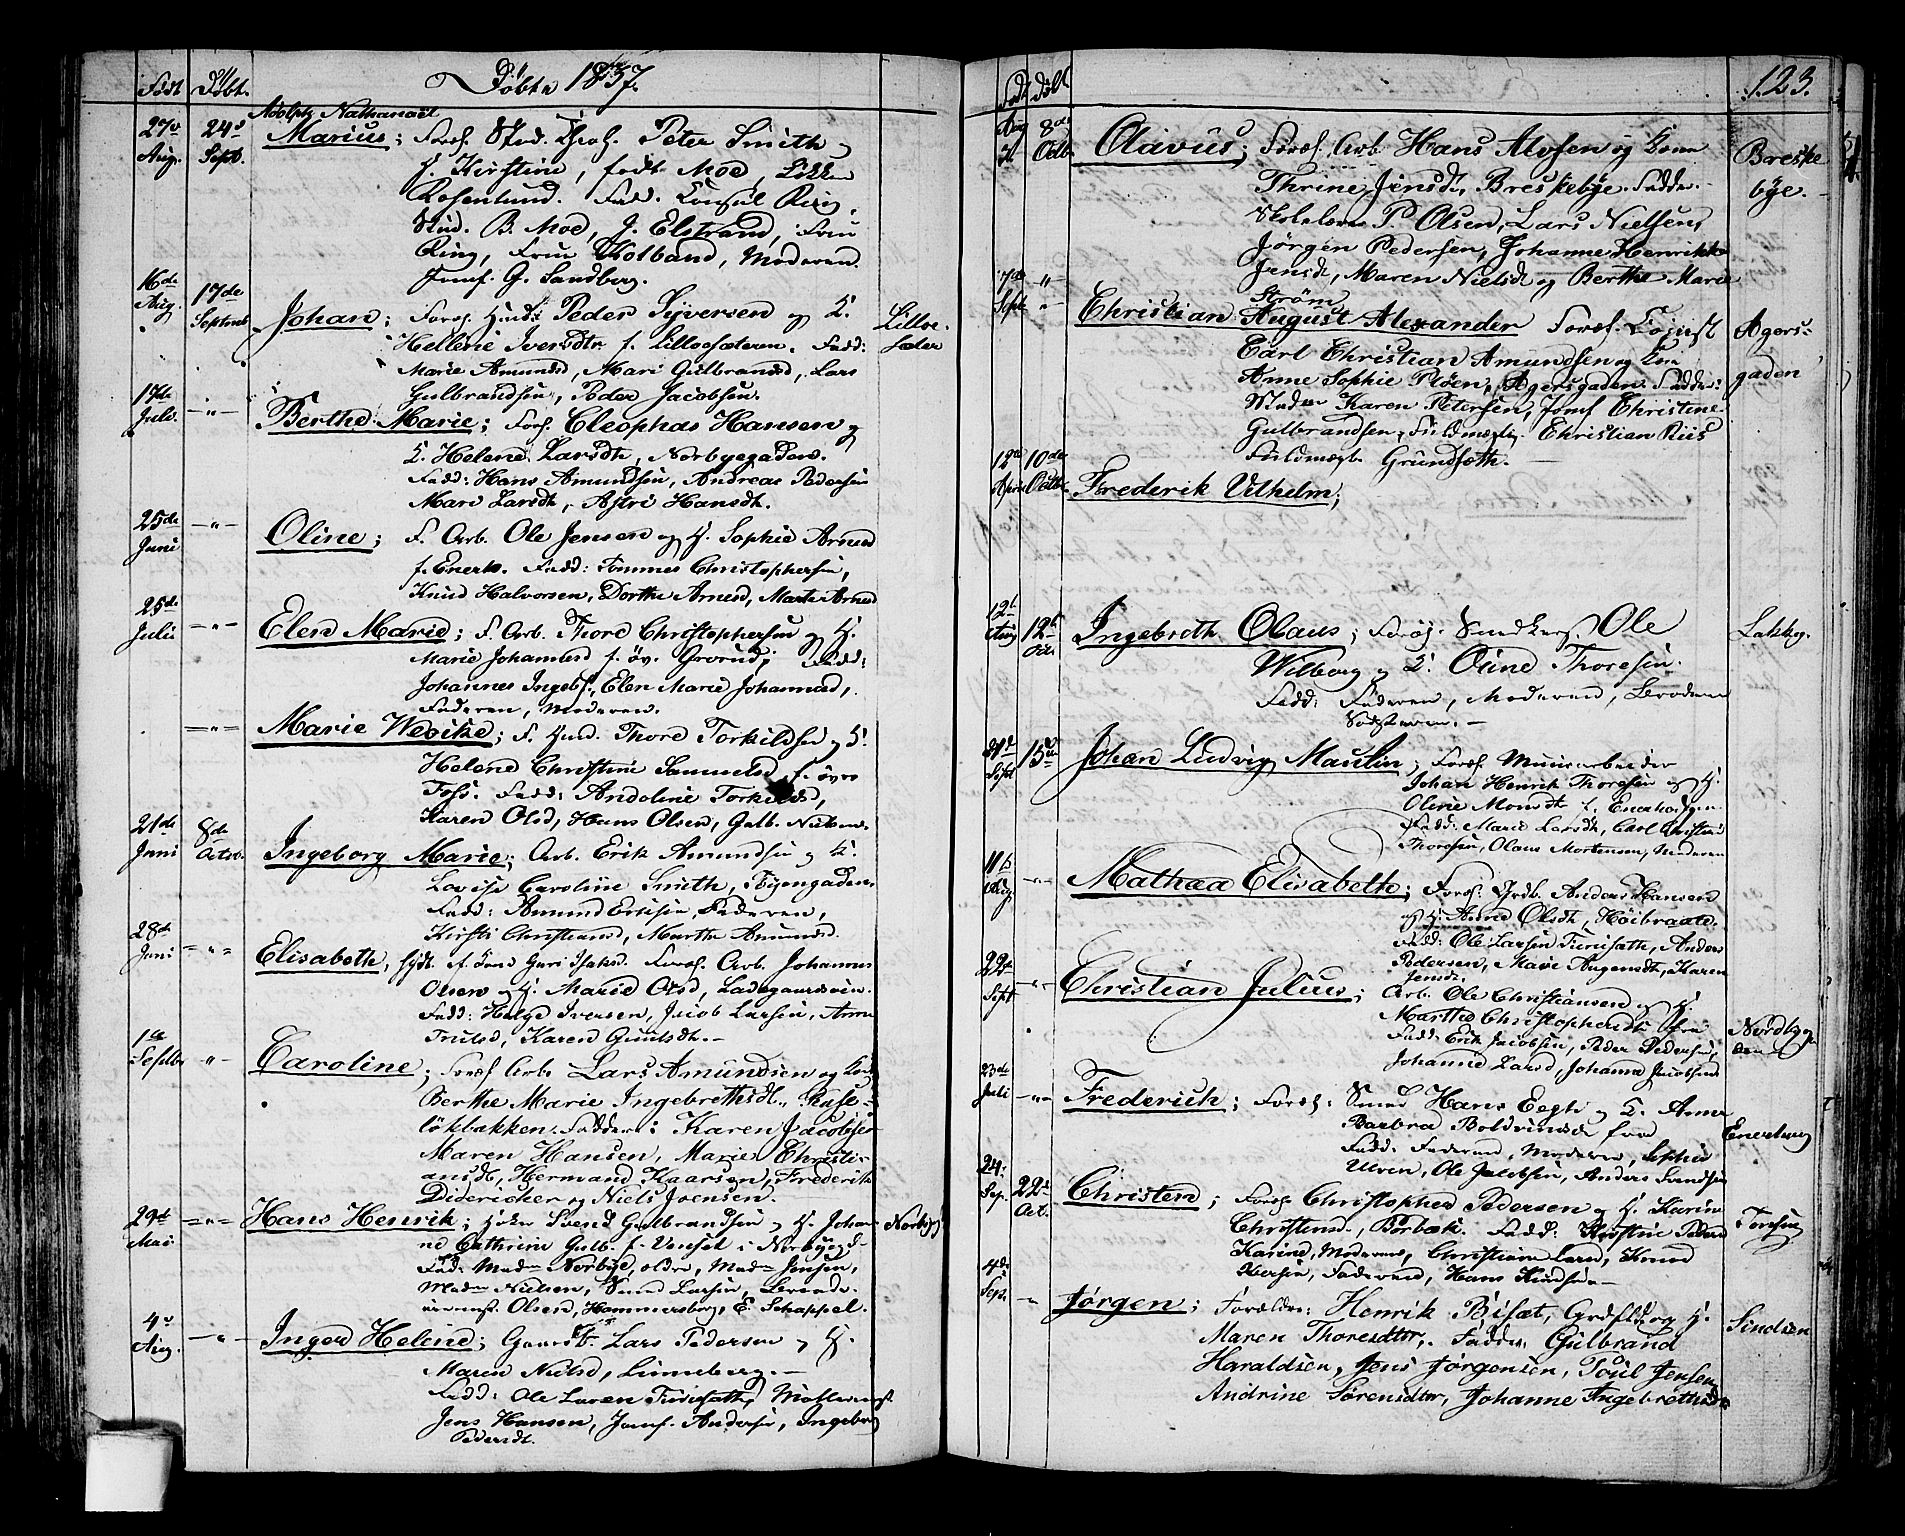 Født Døbt. Døbte 1837.
Adolph Nathanael
27de Aug. 24de Sept. Marius; Foræl. Stud. Peter Smith og
H. Kirstine, født Moe, Løkken
Rosenlund. Fadd. Consul Ring,
Stud. B. Moe, J. Elstrand, Frue
Ring, Frue Holband, Moderen
Jomf. G. Sandberg.
16de Aug. 17de Septemb. Johan; Foræl. Huusm. Peder Syversen og K. Lilloe-
Hellene Iversdtr. f. Lilloesæteren. Fadd: sæter
Marie Amundsd, Mari Gulbrandsd, Lars
Gulbrandsen, Peder Jacobsen.
17de Juli. -"- Berthe Marie; For. Cleophas Hansen og
K. Helene Larsdtr, Norbyegaden.
Fadd: Hans Amundsen, Andreas Pedersen
Mari Larsdt, Astri Hansdt.
25de Juni -"- Oline; F. Arb. Ole Jensen og H. Sophie Arnesd
f. Enerh. Fadd: Tommes Christophersen,
Knud Halvorsen, Dorthe Arnesd, Marte Arnesd
25de Juli -"- Elen Marie; F. Arb. Thore Christophersen og H.
Marie Johannesd f. øv. Grorud; Fadd:
Johannes Ingebr., Elen Marie Johannesd,
Faderen, Moderen.
-"- Marie Wecike; F. Huusm. Thore Torkildsen og H.
Helene Christine Samuelsd f. øvre
Foss. Fadd: Andoline Torkildsd,
Karen Olsd, Hans Olsen, Gulb. Nielsen.
21de Juni 8de Octob. Ingeborg Marie; Arb. Erik Amundsen og H.
Lovise Caroline Smith, Fadd: Amund Eriksen, Faderen,
Kirsti Christiansd, Marthe Amundsd.
28de Juni -"- Elisabeth, Foræl. Arb. Johannes
Olsen og H. Marie Olsd, Ladegaardsøen.
Fadd: Helge Iversen, Jacob Larsen, Anne
Truelsd, Karen
1ste Septbr -"- Caroline; Foræl Arb. Lars Amundsen og Kone
Berthe Marie Ingebrethsdt., Ruse-
løkbakken. Faddere: Karen Jacobsen
Maren Hansen, Marie Christi-
ansdt, Hermand Kaarsen, Frederik
Didericher og Niels Joensen.
29de Mai -"- Hans Henrik; Høker Svend Gulbrandsen og H. Johan- Norbyg
ne Cathrine Gulb. f. i Norbyegd.
Fad: Mad. Norbye, ældre, Mad. Jensen,
Mad. Nielsen, Svend Larsen,
Olsen, Hammersborg, E. Schappel.
4de Aug. -"- Inger Helene; Gaardb. Lars Pedersen og H.
Maren Nielsd, Linneberg.
Fadd: Ole Larsen Møller
Jens Hansen, Jomf. Andersen, Ingeborg
Pedersdt.
Født Døbt. 123.
Aug 31 8de Octb. Olavus; Foræl. Arb. Hans Alofsen og Kone Breske
Thrine Jensdt, Breskebye. Faddere. bye.
Skolelærer P. Olsen, Lars Nielsen,
Jörgen Pedersen, Johanne Henrikke
Jensdt, Maren Nielsdt og Berthe Marie
Strøm
7de Sept. -"- Christian August Alexander Foræl. Agers-
Carl Christian Amundsen og Kone gaden
Anne Sophie Pløen, Agersgaden. Faddere:
Madm Karen Petersen, Jomf Christine
Gulbrandsen, Fuldmægtg. Christian Riis
Fuldmægt. Grundseth.
12te April 10de Octbr. Frederik Vilhelm;
12te Aug 12te Oct. Ingebreth Olaus; Foræl. Snedkers. Ole Lakkg.
Wilberg og K. Oline Thoresen.
Fadd: Faderen, Moderen, Broderen
Søsteren.
21de Sept 15de Johan Ludvig Maulin, Foræl. Muurarbeider
Johan Henrik Thoresen og H.
Oline Monsdt f. Enerhougen
Fadd: Marie Larsdt, Carl Christian
Thoresen, Olaus Mortensen, Moderen
11te Aug. -"- Mathea Elisabeth; Foræl. Grdb. Anders Hansen
og H. Anne Olsdt, Høibraate.
Fadd: Ole Larsen Anders
Pedersen, Marie Augensdt, Karen
Jensdt.
22de Sept -"- Christian Julius; Arb. Ole Christiansen og H.
Marthe Christophersdt fra Nordbyga
Fadd: Erik Jacobsen, Peder Pedersen, den
Johanne Larsd, Johanne Jacobsend
23de Juli -"- Frederich; Foræl: Smed Hans Eegh og K. Anne
Barbra Boldvinsd fra Enerhoug
Fadd: Faderen, Moderen, Sophie
Ulven, Ole Jacobsen, Anders Svendsen
24. Sep. 22de Oct. Christen; Foræl. Christopher Pedersen og H. Karine
Christensd., Börbæk. Fadd: Kirstine Pedersd
Karine, Moderen, Christiane Larsd, Knud
Iversen, Faderen, Hans Knudsen
4de Sept. -"- Jørgen; Forældre: Henrik Bisat, og H. Sindsen
Maren Thoresdter,. Fadder Gulbrand
Haraldsen, Jens Jørgensen, Poul Jensen
Andrine Sørensdter, Johanne Ingebrethsdt